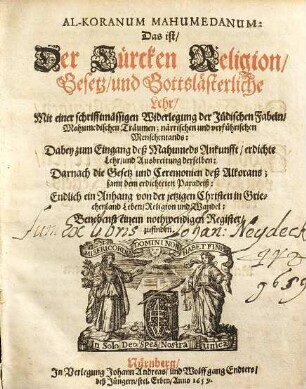 AL-KORANUM MAHUMEDANUM:
Das ist/
Der Türcken Religion/
Gesetz/und Gottslästerliche
Lehr/
Mit einer schrifftmässigen Widerlegung der Jüdischen Fabeln/
Mahumedischen Träumen; närrischen und verführischen
Menschentands:
Dabey zum Eingang deß Mahumeds Ankunfft/ erdichte
Lehr/und Ausbreitung derselben:
Darnach die Gesetz und Ceremonien deß Alkorans;
samt dem erdichteten Paradeiß:
Endlich ein Anhang von der jetzigen Christen in Grie-
chenland Leben/Religion und Wandel;
Benebenst einem nothwendigen Register/
zufinden.
Sum ex libris Johan: Neydeck
1659
MISERICORDIA DOMINI NON HABET FINE
In Solo Deo Spes Nostra unica
Nürnberg/
In Verlegung Johann Andreas/und Wolffgang Endters/
deß Jüngern/sel. Erben/Anno 1659.